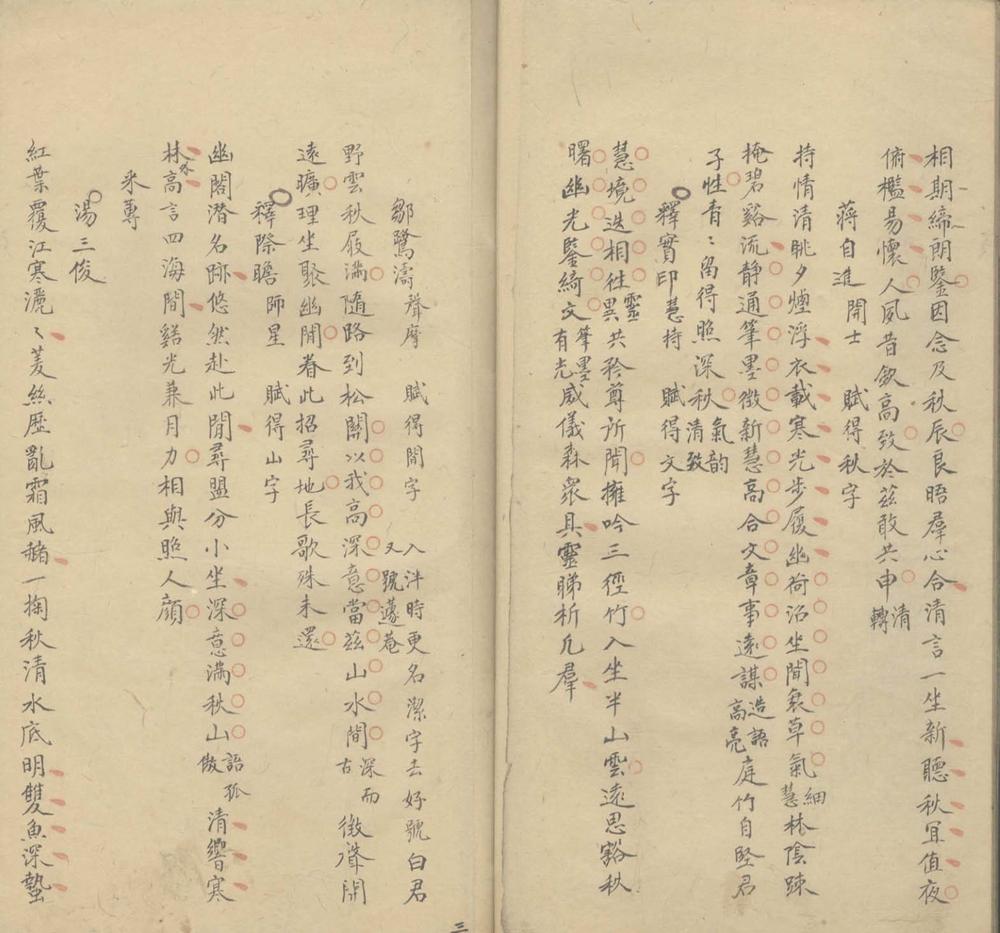 相期締朗鑒因念及秋辰良晤羣心合清言一坐新聽秋宜值夜
俯檻易懷人夙昔欽高致於茲敢共申清轉
蔣自進開士　賦得秋字
持情清眺夕煙浮衣載寒光步履幽荷沼坐閒衰草氣細慧林陰踈
掩碧谿流靜通筆墨微新慧高合文章事遠謀造語高亮庭竹自堅君
子性青〻留得照深秋氣韵清致
釋實印慧持　賦得文字
慧境迭相徃靈異共矜尊所聞擁吟三徑竹入坐半山雲遠思豁秋
曙幽光鑒綺文筆墨有光威儀森衆具靈睇析凡羣
鄒隲濤聲摩　賦得閒字　入泮時更名潔字去好號白君又號蘧菴
野雲秋屐滿隨路到松關以我高深意當茲山水間深而古徵聲開
遠曠理坐聚幽閒眷此招尋地長歌殊未還
釋際瞻師星　賦得山字
幽閣潛名跡悠然赴此閒尋盟分小坐深意滿秋山語孤傲清響寒
林高言四海間谿光兼月力相與照人顔
釆蓴
湯三俊
紅葉覆江寒灑〻菱絲歷亂霜風赭一掬秋清水底明雙魚深蟄
三